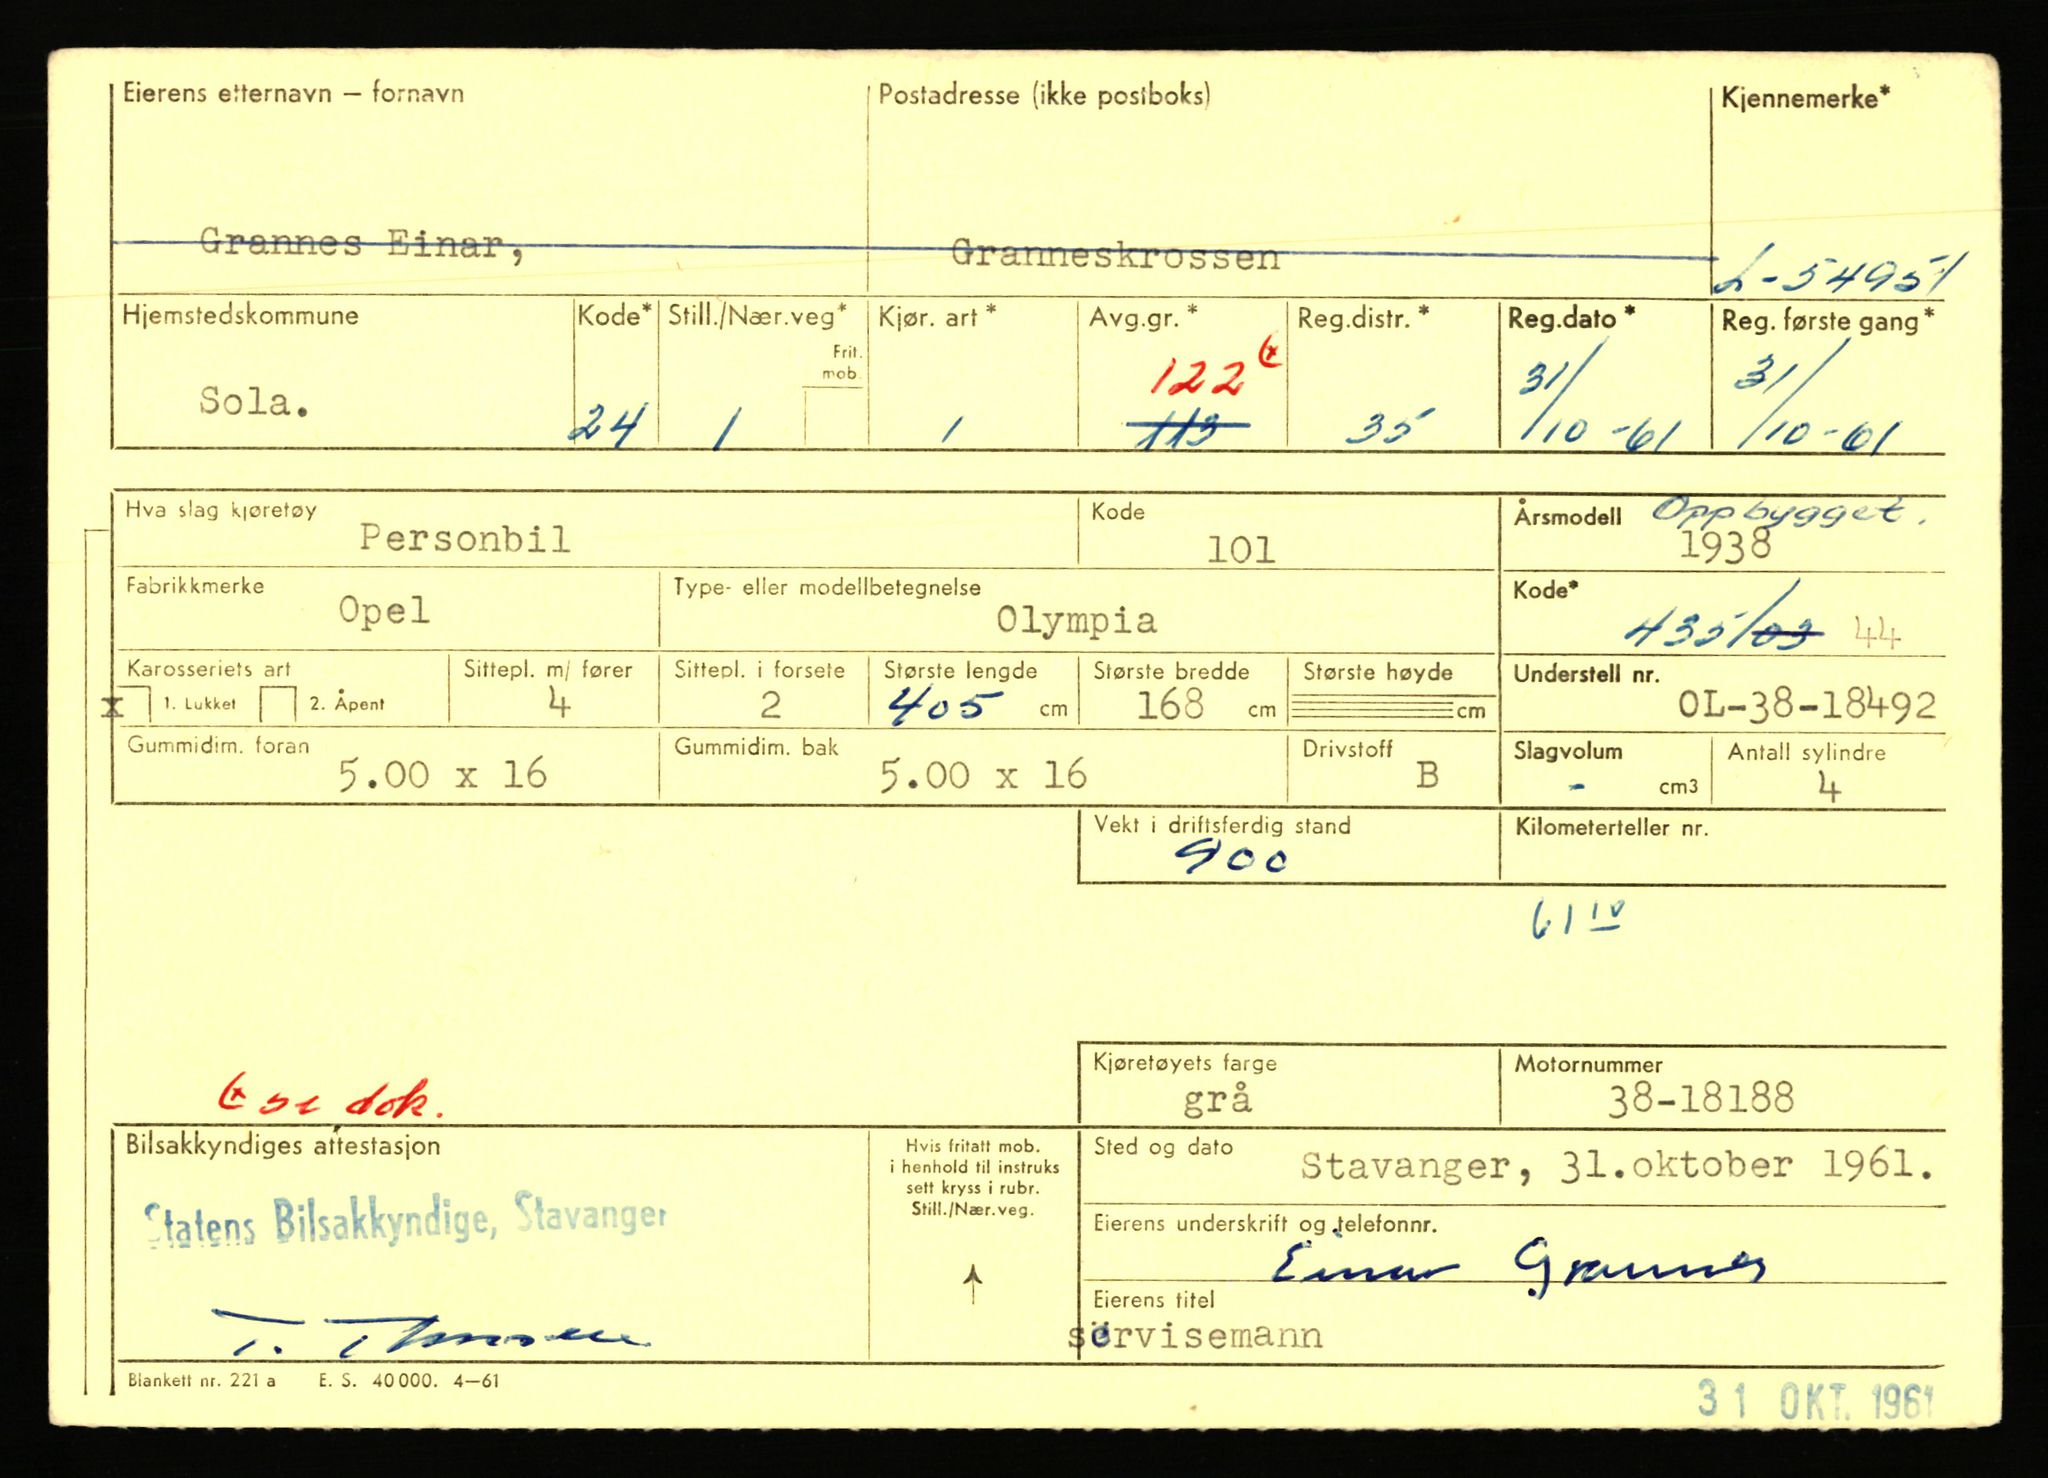 Eierens etternavn – fornavn Postadresse (ikke postboks) Kjennemerke*
Grannes Einar, Granneskrossen L-54951
Hjemstedskommune Kode* Still./Nær.veg* Kjør. art* Avg.gr.* Reg.distr.* Reg.dato* Reg. første gang*
Frit. mob.
122 (x
Sola. 24 1 1 113 35 31/10-61 31/10-61
Hva slag kjøretøy Kode Årsmodell Oppbygget.
Personbil 101 1938
Fabrikkmerke Type- eller modellbetegnelse Kode*
Opel Olympia 435/03 44
Karosseriets art Sittepl. m/ fører Sittepl. i forsete Største lengde Største bredde Største høyde Understell nr.
x 1. Lukket 2. Åpent 4 2 405 cm 168 cm cm OL-38-18492
Gummidim. foran Gummidim. bak Drivstoff Slagvolum Antall sylindre
5.00 x 16 5.00 x 16 B - cm3 4
Vekt i driftsferdig stand Kilometerteller nr.
900
61 IV
Kjøretøyets farge Motornummer
grå 38-18188
(x se dok.
Bilsakkyndiges attestasjon Hvis fritatt mob. Sted og dato
i henhold til instruks Stavanger, 31.oktober 1961.
sett kryss i rubr.
Still./Nær.veg.
Statens Bilsakkyndige, Stavanger Eierens underskrift og telefonnr.
Einar Grannes
Eierens titel
servisemann
Blankett nr. 221 a E. S. 40 000. 4–61
31 OKT. 1961